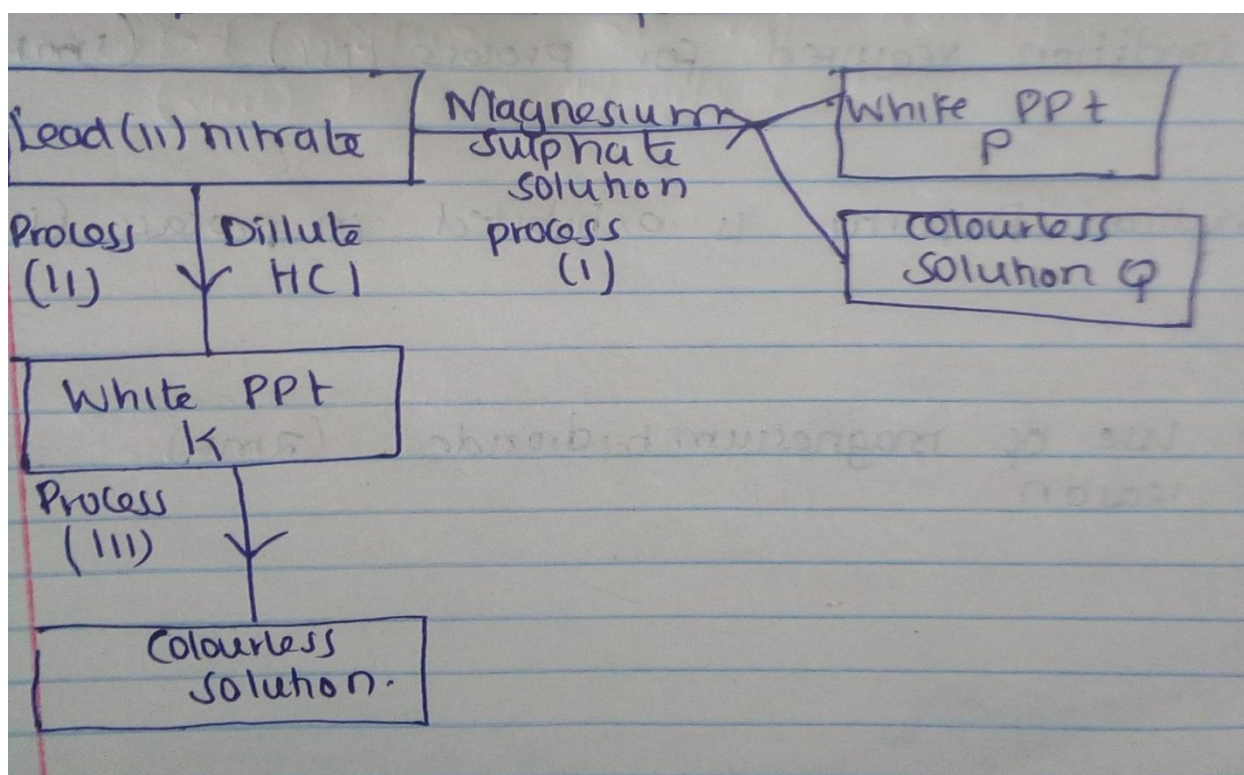 Lead(II) nitrate
Magnesium
sulphate
solution
process
(I)
White PPt
P
Colourless
solution Q
Process
(II)
Dillute
HCl
White PPt
K
Process
(III)
Colourless
solution.